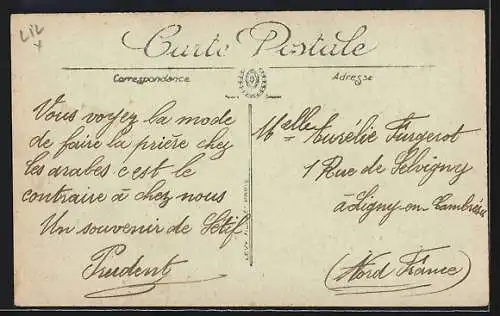 LIL
Carte Postale
Correspondance
Adresse
Vous voyez la mode
de faire la prière chez
les arabes c'est le
contraire à chez nous
Un souvenir de Sétif
Prudent
Melle Aurélie Furgerot
1 Rue de Selvigny
à Ligny-en-Cambrésis
(Nord France)